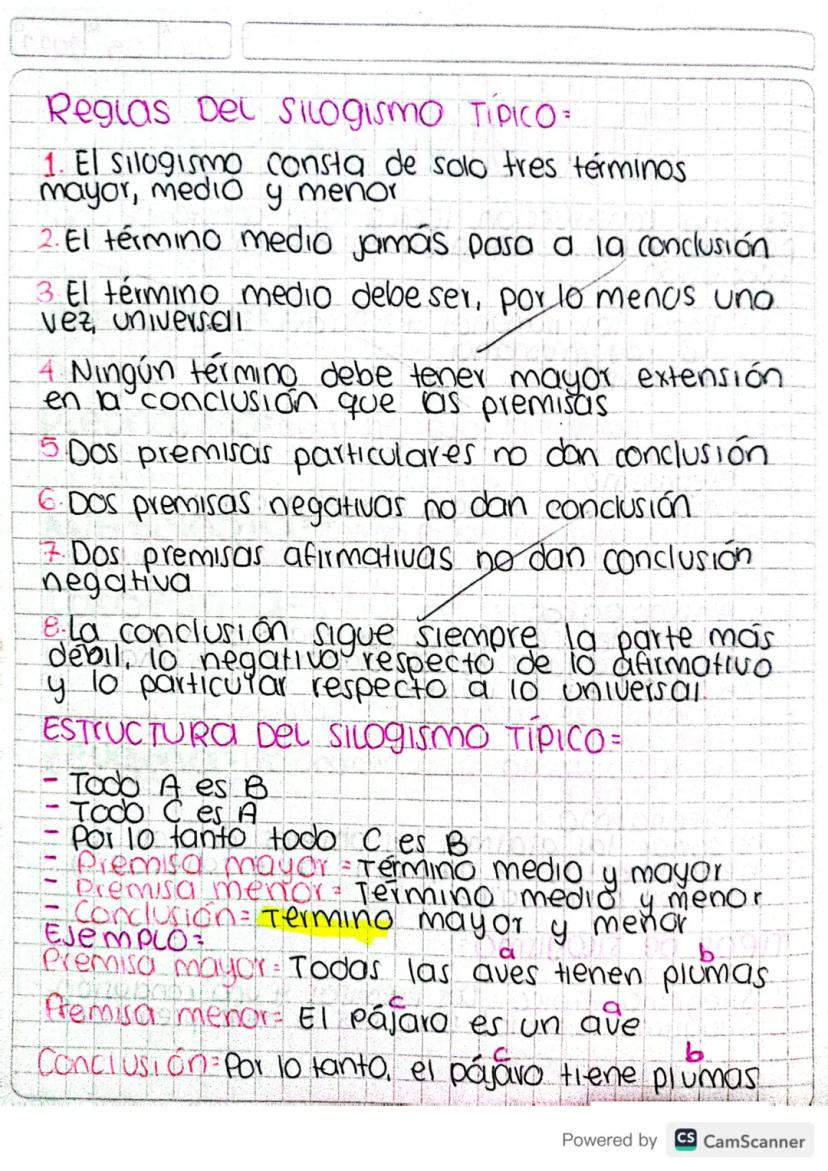 Reglas Del silogismo Típico:
1. El silogismo consta de solo tres términos
mayor, medio y menor
2. El término medio jamás pasa a la conclusión
3 El término medio debe ser, por lo menos una
vez, universal
4 Ningún término debe tener mayor extensión
en la conclusión que las premisas
5 Dos premisas particulares no dan conclusión
6. Dos premisas negativas no dan conclusión
7. Dos premisas afirmativas no dan conclusión
negativa
8. La conclusión sigue siempre la parte más
débil, lo negativo respecto de lo afirmativo
y lo particular respecto a lo universal.
ESTRUCTURA DEL SILOGISMO TÍPICO:
- Todo A es B
- Todo C es A
- Por lo tanto todo C es B
- Premisa mayor = Término medio y mayor
- Premisa menor = Término medio y menor
- Conclusión = Termino mayor y menor
EJEMPLO:
a b
Premisa mayor: Todas las aves tienen plumas
c a
Premisa menor: El pájaro es un ave
c b
Conclusión: Por lo tanto, el pájaro tiene plumas
Powered by CS CamScanner